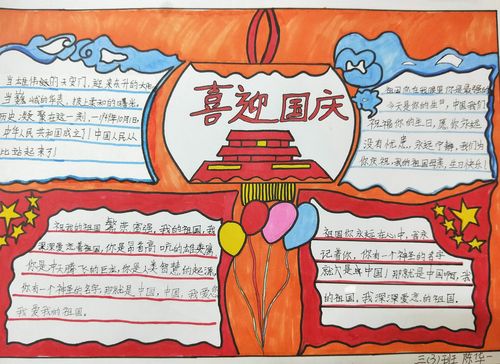 当雄伟的天安门,迎来东升的太阳
当巍峨的华表,披上柔和的曙光,
历史凝聚在这一刻,一九四九年10月1日
中华人民共和国成立了!中国人民从
此站起来了!
喜迎国庆
祖国你在我眼里你是最强的
今天是你的生日,中国我们
祝福你的生日,愿你永远
没有忧患,永远宁静,我们为
你庆祝,我的祖国母亲,生日快乐!
祝我的祖国繁荣富强,我的祖国,我
深深爱恋着祖国,你是昂首高吭的雄鸡
你是冲天腾飞的巨龙,你是人类智慧的起源
你有一个神圣的名字,那就是中国,中国,我爱您
我爱我的祖国.
祖国你永远在心中,
记着你,你有一个神圣的名字,
就是中国!那就是中国啊,我
的祖国,我深深爱恋的祖国.
三(3)班 陈华一